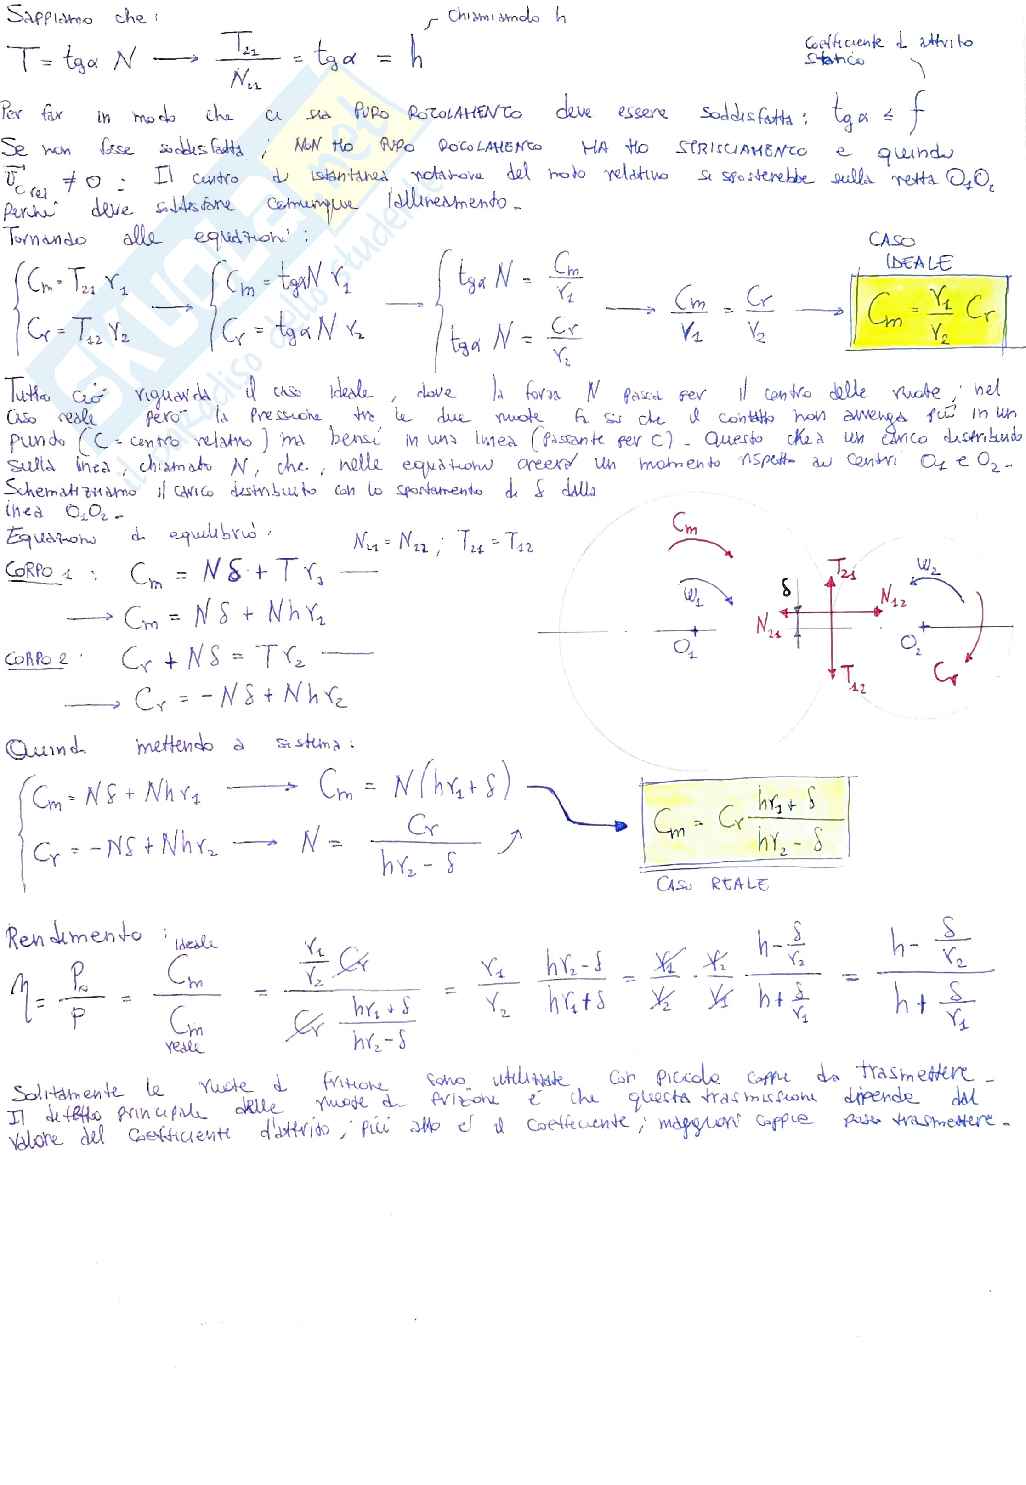 Sappiamo che:
chiamiamolo h
T = tgα N → T₂₁/N₂₁ = tgα = h
Coefficiente d'attrito statico
Per far in modo che ci sia PURO ROTOLAMENTO deve essere soddisfatta: tgα ≤ f
Se non fosse soddisfatta, NON HO PURO ROTOLAMENTO MA HO STRISCIAMENTO e quindi
v̄c rel ≠ 0: Il centro di istantanea rotazione del moto relativo si sposterebbe sulla retta O₁O₂
perché deve soddisfare comunque l'allineamento.
Tornando alle equazioni:
{ Cm = T₂₁ r₁ → { Cm = tgα N r₁ → { tgα N = Cm/r₁ → Cm/r₁ = Cr/r₂ → Cm = r₁/r₂ Cr
Cr = T₁₂ r₂ Cr = tgα N r₂ tgα N = Cr/r₂
CASO IDEALE
Tutto ciò riguarda il caso ideale, dove la forza N passa per il centro delle ruote; nel
caso reale però la pressione tra le due ruote fa sì che il contatto non avvenga più in un
punto (C = centro relativo) ma bensì in una linea (passante per C). Questo crea un carico distribuito
sulla linea, chiamato N, che, nelle equazioni creerà un momento rispetto ai centri O₁ e O₂.
Schematizziamo il carico distribuito con lo spostamento di δ dalla
linea O₁O₂.
Equazioni di equilibrio: N₂₁ = N₁₂; T₂₁ = T₁₂
CORPO 1: Cm = Nδ + T r₁
→ Cm = Nδ + Nhr₂
CORPO 2: Cr + Nδ = T r₂
→ Cr = -Nδ + Nhr₂
Cm
ω₁
O₁
δ
N₂₁
T₂₁
N₁₂
T₁₂
ω₂
O₂
Cr
Quindi mettendo a sistema:
{ Cm = Nδ + Nhr₁ → Cm = N(hr₁ + δ)
Cr = -Nδ + Nhr₂ → N = Cr/(hr₂ - δ)
Cm = Cr (hr₁ + δ)/(hr₂ - δ)
CASO REALE
Rendimento:
η = P₀/P = Cm ideale/Cm reale = (r₁/r₂ Cr)/(Cr (hr₁ + δ)/(hr₂ - δ)) = r₁/r₂ (hr₂ - δ)/(hr₁ + δ) = r₁/r₂ · r₂/r₁ (h - δ/r₂)/(h + δ/r₁) = (h - δ/r₂)/(h + δ/r₁)
Solitamente le ruote di frizione sono utilizzate con piccole coppie da trasmettere.
Il difetto principale delle ruote di frizione è che questa trasmissione dipende dal
valore del coefficiente d'attrito; più alto è il coefficiente, maggiori coppie posso trasmettere.
SKUOLA.net
il paradiso dello studente